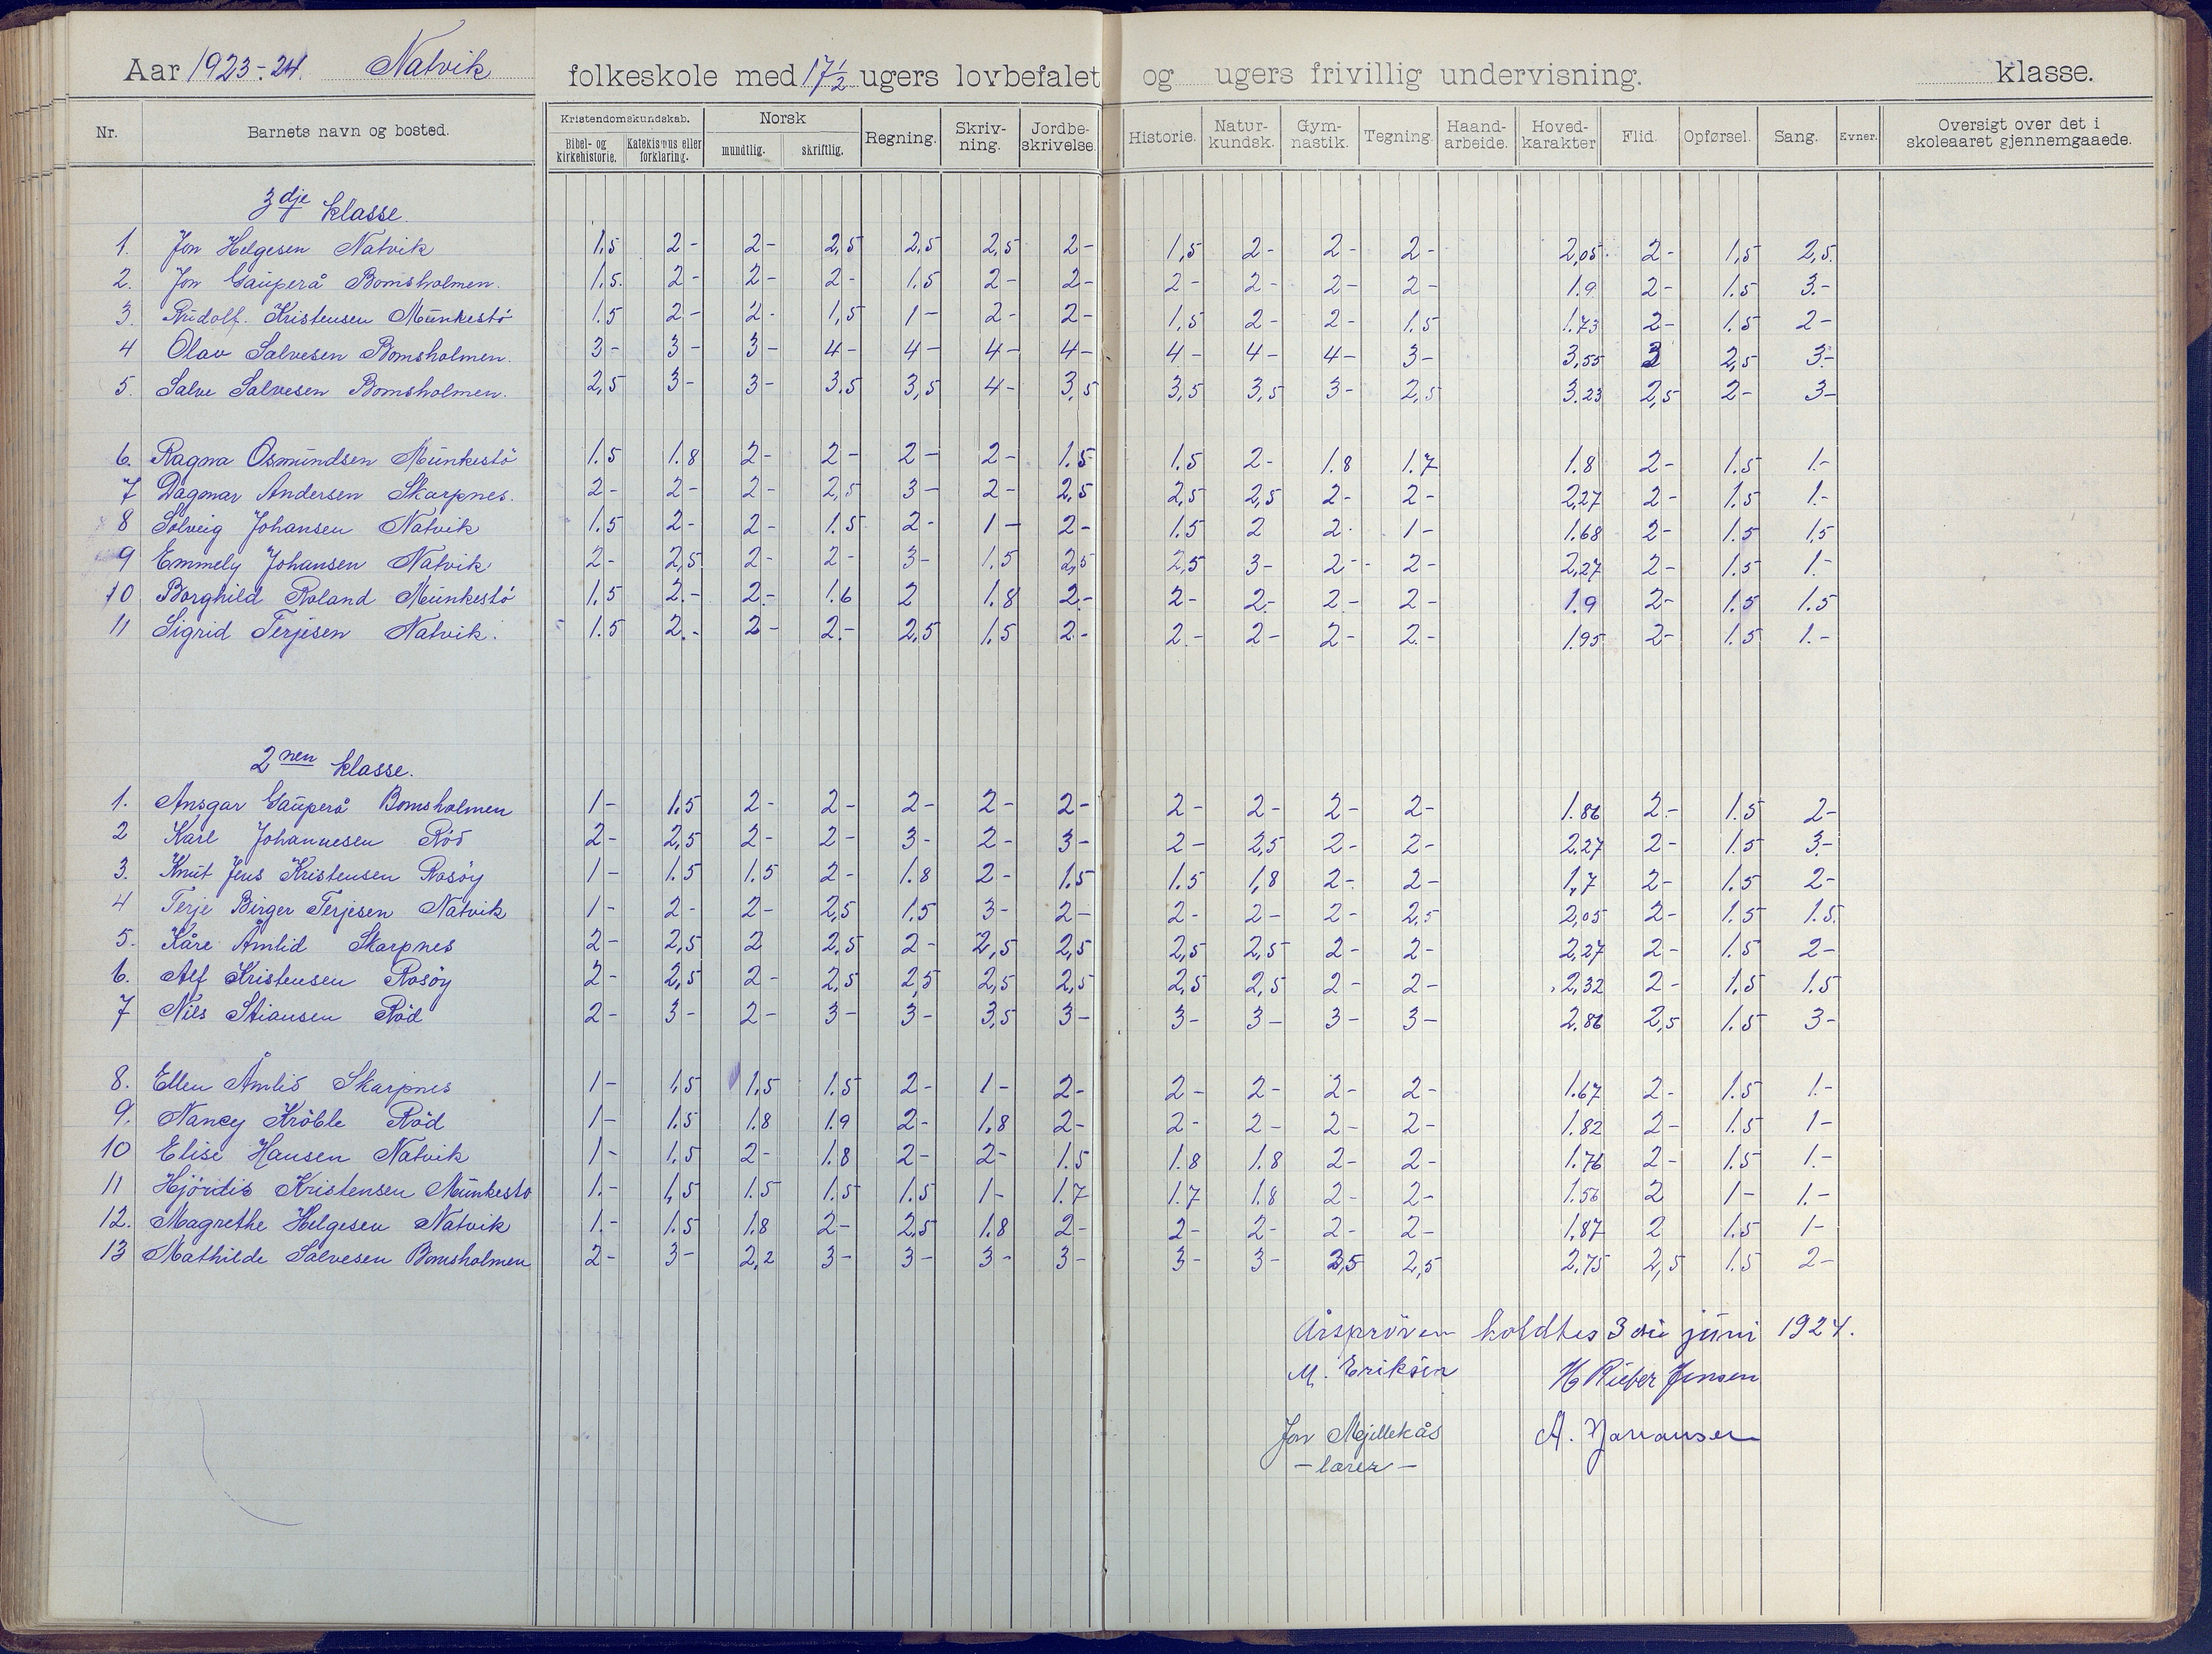 Aar 1923-24. Natvik folkeskole med 17½ ugers lovbefalet og ugers frivillig undervisning. klasse.
Nr. Barnets navn og bosted. Kristendomskundskab. Bibel- og kirkehistorie. Katekismus eller forklaring. Norsk mundtlig. skriftlig. Regning. Skriv-ning. Jordbe-skrivelse. Historie. Natur-kundsk. Gym-nastik. Tegning. Haand-arbeide. Hoved-karakter Flid. Opførsel. Sang. Evner. Oversigt over det i skoleaaret gjennemgaaede.
3dje klasse.
1. Jon Helgesen Natvik 1,5 2- 2- 2,5 2,5 2,5 2- 1,5 2- 2- 2- 2,05. 2- 1,5 2,5.
2. Jon Gauperå Bomsholmen. 1.5. 2- 2- 2- 1.5 2- 2- 2- 2- 2- 2- 1.9 2- 1.5 3.-
3. Rudolf. Kristensen Munkestö 1.5 2- 2- 1,5 1- 2- 2- 1,5 2- 2- 1.5 1.73 2- 1.5 2-
4 Olav Salvesen Bomsholmen. 3- 3- 3- 4- 4- 4- 4- 4- 4- 4- 3- 3,55 3 2,5 3.-
5. Salve Salvesen Bomsholmen. 2,5 3- 3- 3,5 3,5 4- 3,5 3,5 3,5 3- 2,5 3.23 2,5 2- 3-
6. Ragna Osmundsen Munkestö 1.5 1.8 2- 2- 2- 2- 1.5 1.5 2- 1.8 1.7 1.8 2- 1.5 1.-
7 Dagmar Andersen Skarpnes. 2- 2- 2- 2,5 3- 2- 2,5 2,5 2,5 2- 2- 2,27 2- 1.5 1.-
8 Solveig Johansen Natvik 1.5 2- 2- 1.5 2- 1- 2- 1.5 2 2- 1- 1.68 2- 1.5 1,5
9 Emmely Johansen Natvik 2- 2,5 2- 2- 3- 1.5 2,5 2,5 3- 2- 2- 2,27 2- 1.5 1.-
10 Borghild Roland Munkestö 1.5 2.- 2.- 1.6 2 1.8 2.- 2- 2- 2- 2- 1.9 2- 1.5 1.5
11 Sigrid Terjesen Natvik. 1.5 2.- 2- 2.- 2,5 1.5 2- 2.- 2- 2- 2.- 1.95 2- 1.5 1.-
2nen klasse.
1. Ansgar Gauperå Bomsholmen 1- 1,5 2- 2- 2- 2- 2- 2- 2- 2- 2- 1.86 2- 1.5 2-
2 Karl Johannesen Röd 2- 2,5 2- 2- 3- 2- 3- 2- 2,5 2- 2- 2.27 2- 1.5 3.-
3. Knut Jens Kristensen Rosöy 1- 1.5 1.5 2- 1.8 2- 1.5 1.5 1,8 2- 2- 1,7 2- 1.5 2-
4 Terje Birger Terjesen Natvik 1- 2- 2- 2,5 1.5 3- 2- 2- 2- 2- 2,5 2,05 2- 1.5 1.5.
5. Kåre Åmlid Skarpnes 2- 2,5 2 2,5 2- 2,5 2,5 2,5 2,5 2- 2- 2,27 2- 1.5 2-
6. Alf Kristensen Rosöy 2- 2,5 2- 2,5 2,5 2,5 2,5 2,5 2,5 2- 2- 2,32 2- 1,5 1.5
7 Nils Stiansen Röd 2- 3- 2- 3- 3- 3,5 3- 3- 3- 3- 3- 2.86 2,5 1.5 3-
8. Ellen Åmlid Skarpnes 1- 1,5 1,5 1.5 2- 1- 2- 2- 2- 2- 2- 1.67 2- 1.5 1.-
9. Nancy Kröble Röd 1- 1.5 1.8 1.9 2- 1.8 2- 2- 2- 2- 2- 1.82 2- 1.5 1-
10 Elise Hansen Natvik 1- 1.5 2- 1.8 2- 2- 1.5 1.8 1.8 2- 2- 1.76 2- 1.5 1.-
11 Hjördis Kristensen Munkestö 1.- 1,5 1.5 1.5 1.5 1- 1.7 1.7 1.8 2- 2- 1.56 2 1- 1.-
12. Magrethe Helgesen Natvik 1.- 1.5 1.8 2- 2,5 1.8 2- 2- 2- 2- 2- 1,87 2 1.5 1-
13 Mathilde Salvesen Bomsholmen 2- 3- 2,2 3- 3- 3- 3- 3- 3- 2,5 2,5 2.75 2,5 1.5 2-
Årspröven holdtes 3die juni 1924.
M. Eriksen H Rieber Jensen
Jon Mjillekås A. Johansen
- lærer -